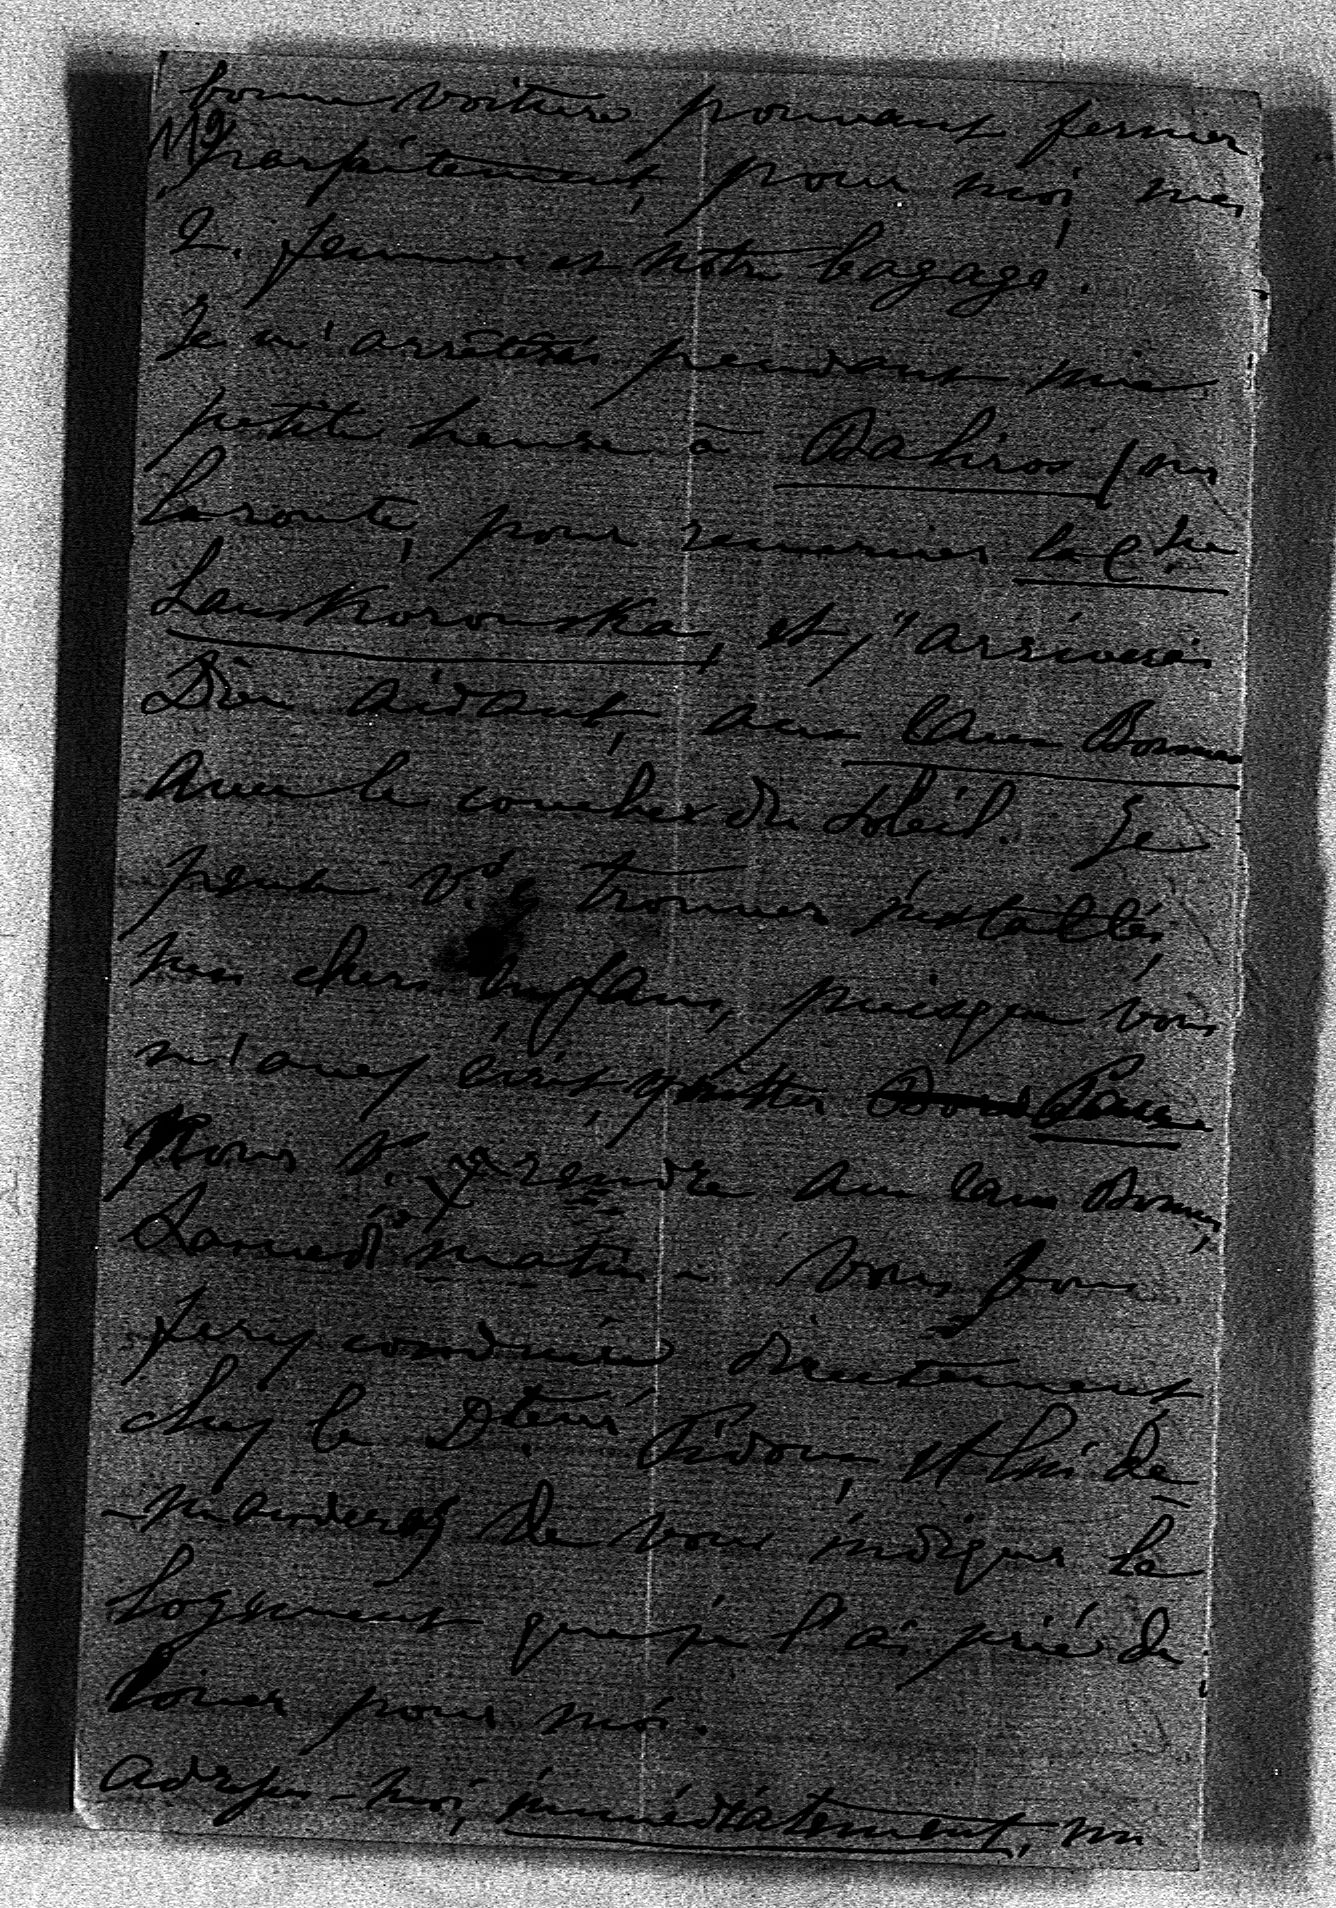 bonne voiture pouvant fermer
119
parfaitement, pour moi, mes
2. femmes et notre bagage.
Je m'arrêterés pendant une
petite heure à Daliros sur
la route, pour remercier la Ctsse
Lanskoronska, et j'arriverés
Dieu aidant, aux Eaux Bonnes
avec le coucher du Soleil. Je
pense v. y trouver installés
mes chers Enfans, puisque vous
m'avez écrit, quitter Pau
Pour v. y rendre aux Eaux Bonnes,
Samedi matin - Vous vous
ferez conduire directement
chez le Dteur Pidoux, et lui de
-manderez de vous indiquer le
logement que je l'ai prié de
louer pour moi.
adressés-moi, immédiatement, un